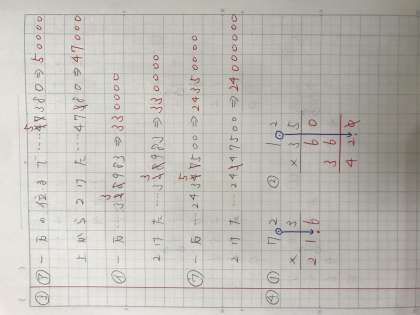 ③ ㋐ 一万の位まで…47380⇒50000
上から2けた…47380⇒47000
㋑ 一万…328983⇒330000
2けた…328983⇒330000
㋒ 一万…24347500⇒24350000
2けた…24347500⇒24000000
④ ① 7.2
× 3
21.6
② 1.2
× 35
60
36
42.0